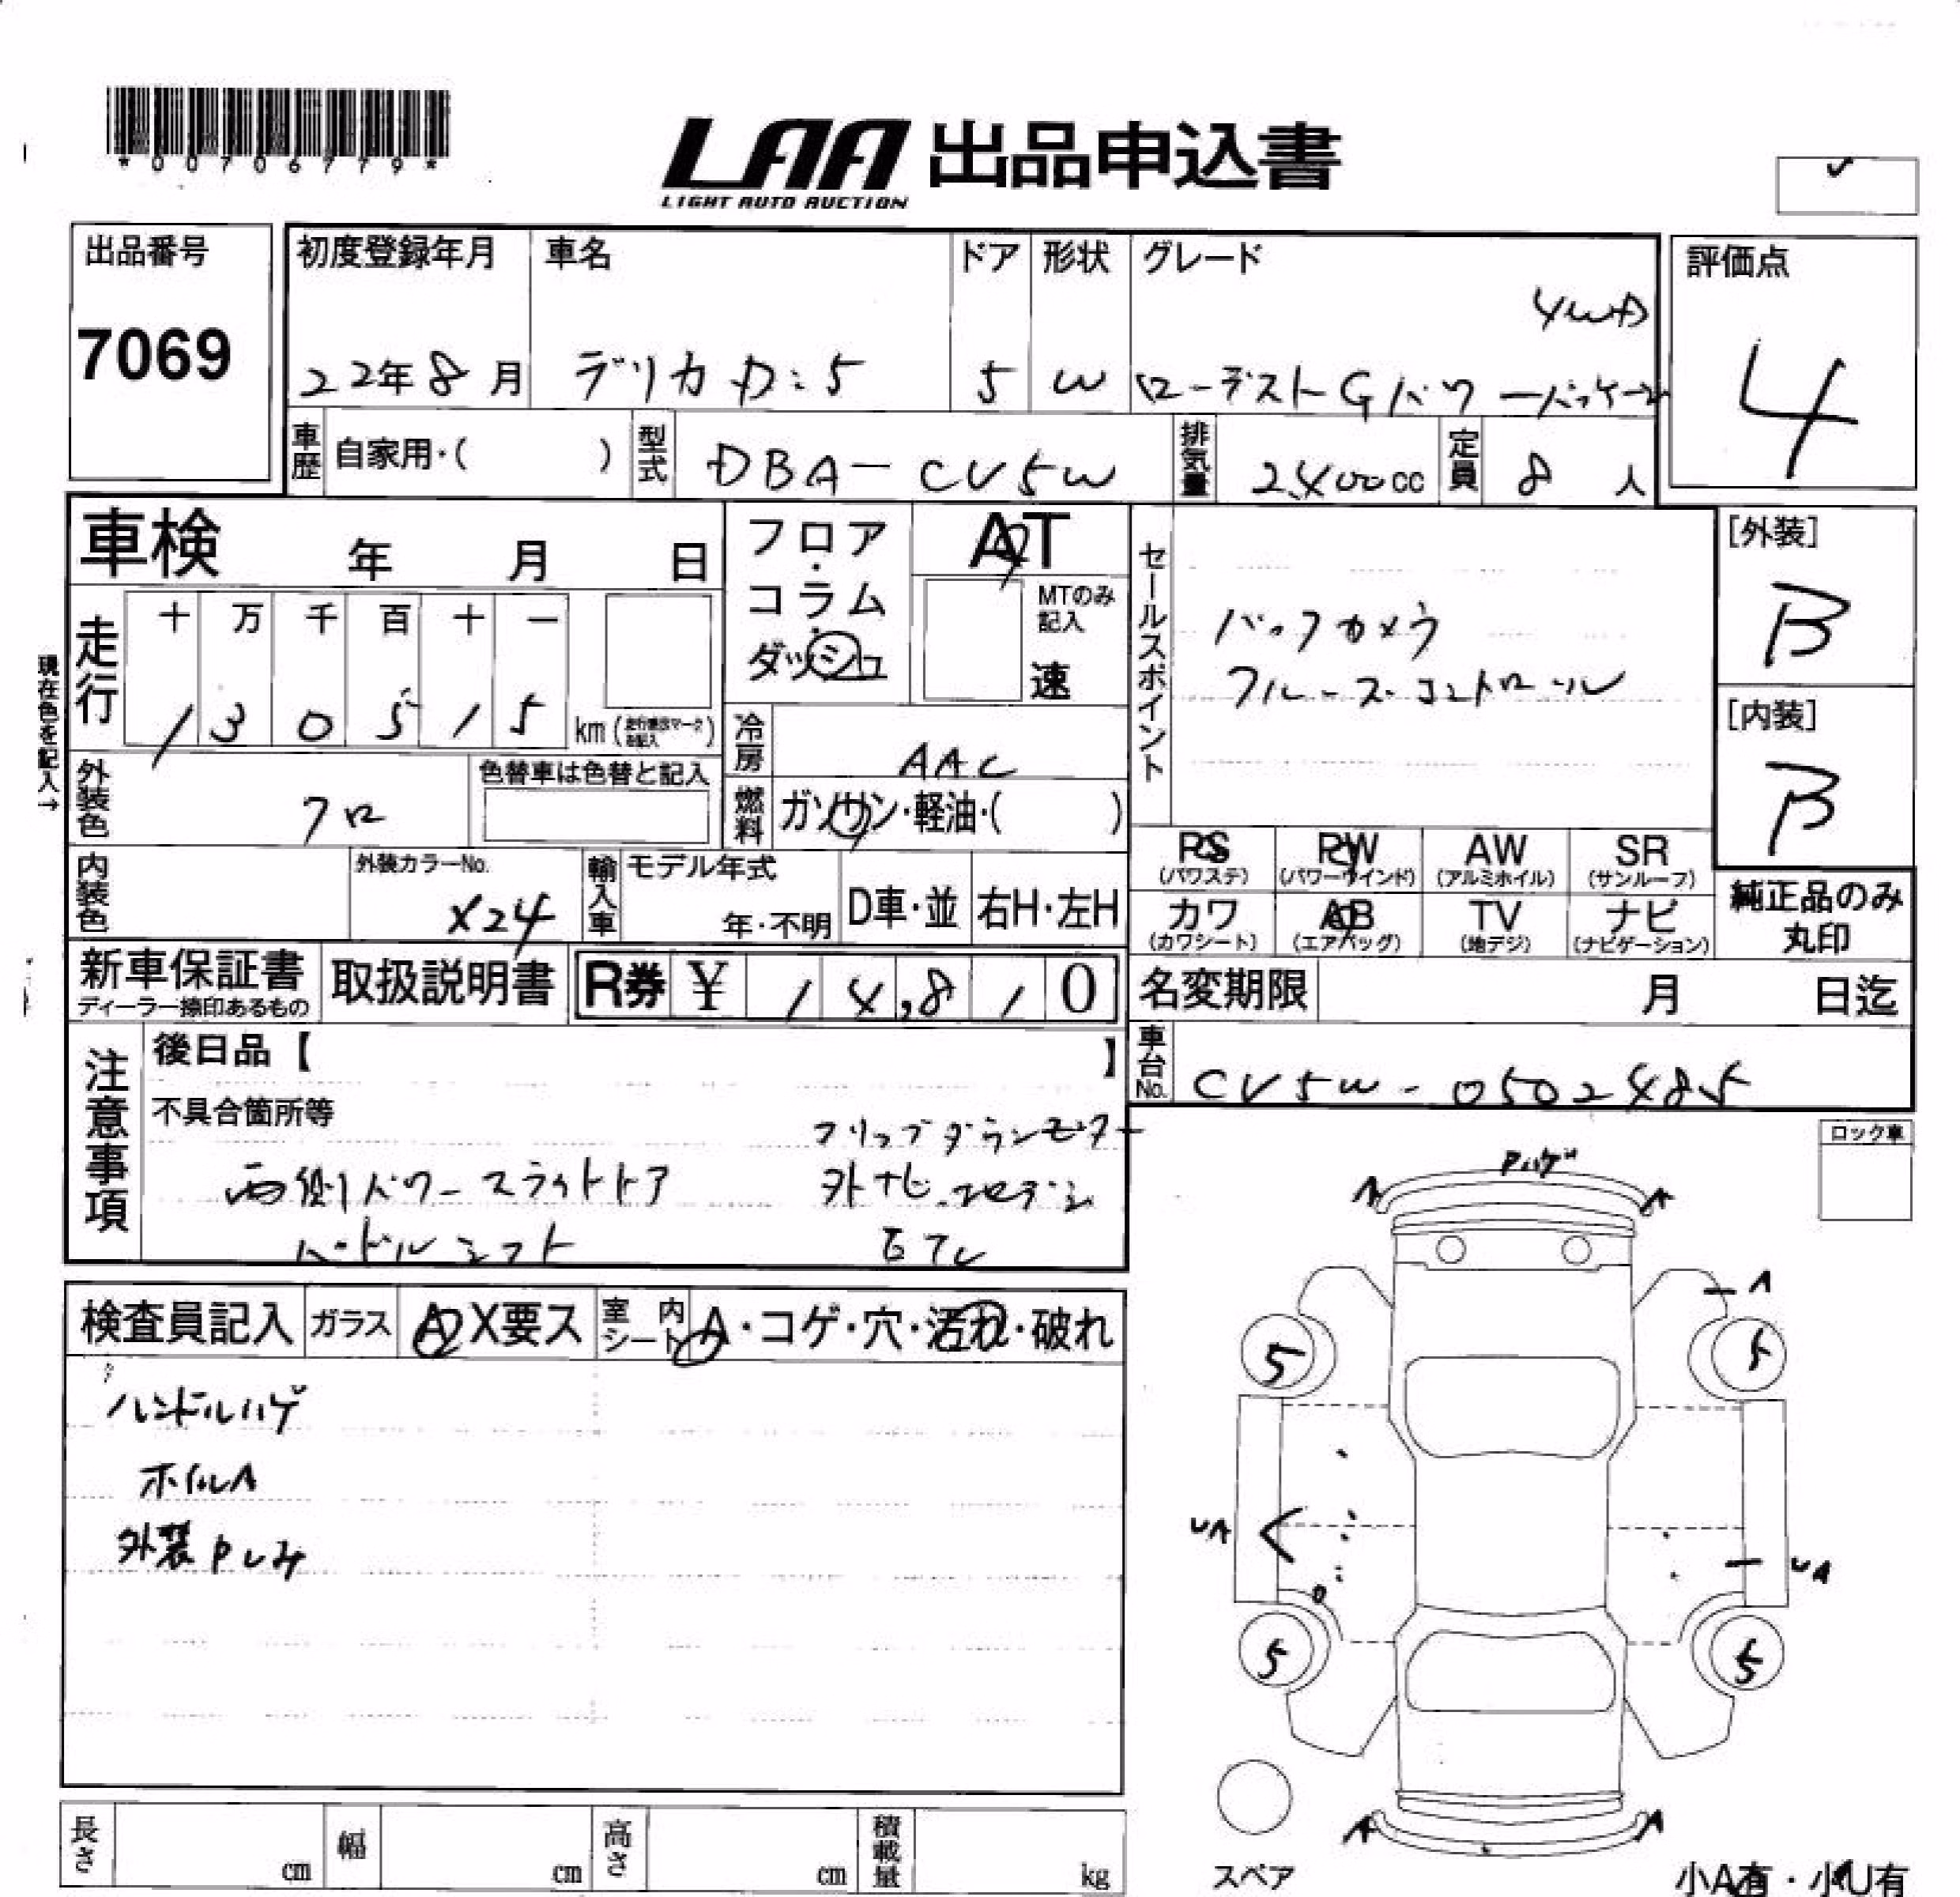 *00706779*
LAA 出品申込書
LIGHT AUTO AUCTION
出品番号
7069
初度登録年月
22年8月
車名
デリカD:5
ドア
5
形状
W
グレード
4WD
ローデストGパワーパッケージ
評価点
4
車歴 自家用・( )
型式 DBA-CV5W
排気量 2400cc
定員 8人
車検 年 月 日
フロア・コラム・ダッシュ
AT
MTのみ記入
速
セールスポイント
バックカメラ
クルーズコントロール
[外装]
B
[内装]
B
現在色を記入→
走行
十 万 千 百 十 一
1 3 0 5 1 5 km
冷房 AAC
外装色 クロ
色替車は色替と記入
燃料 ガソリン・軽油・( )
内装色
外装カラーNo.
X24
輸入車
モデル年式
年・不明
D車・並
右H・左H
PS (パワステ)
PW (パワーウインド)
AW (アルミホイル)
SR (サンルーフ)
カワ (カワシート)
AB (エアバッグ)
TV (地デジ)
ナビ (ナビゲーション)
純正品のみ丸印
新車保証書
ディーラー捺印あるもの
取扱説明書
R券 ¥ 14,810
名変期限 月 日迄
車台No. CV5W-0502485
注意事項
後日品【 】
不具合箇所等
フリップダウンモニター
両側パワースライドドア
外ナビ.地デジ
ハンドルシフト
ETC
ロック車
検査員記入
ガラス A X要ス
室内シート A・コゲ・穴・汚れ・破れ
ハンドルハゲ
ホイルA
外装Pしみ
Pハゲ
A A
A
5 5
UA UA
5 5
A A
スペア
小A有・小U有
長さ cm
幅 cm
高さ cm
積載量 kg